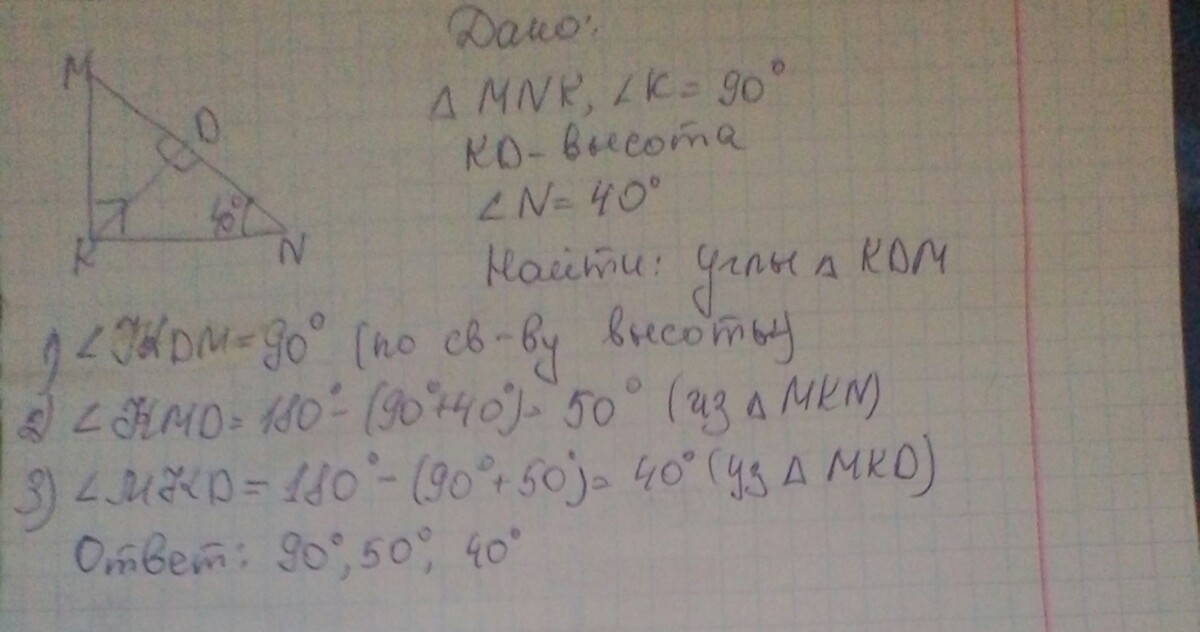 Дано:
M
△ MNK, ∠K = 90°
D
KD - высота
∠N = 40°
40°
K
N
Найти: углы △ KDM
1) ∠KDM = 90° (по св-ву высоты)
2) ∠KMD = 180° - (90°+40°) = 50° (из △ MKN)
3) ∠MKD = 180° - (90°+50°) = 40° (из △ MKD)
Ответ: 90°, 50°, 40°